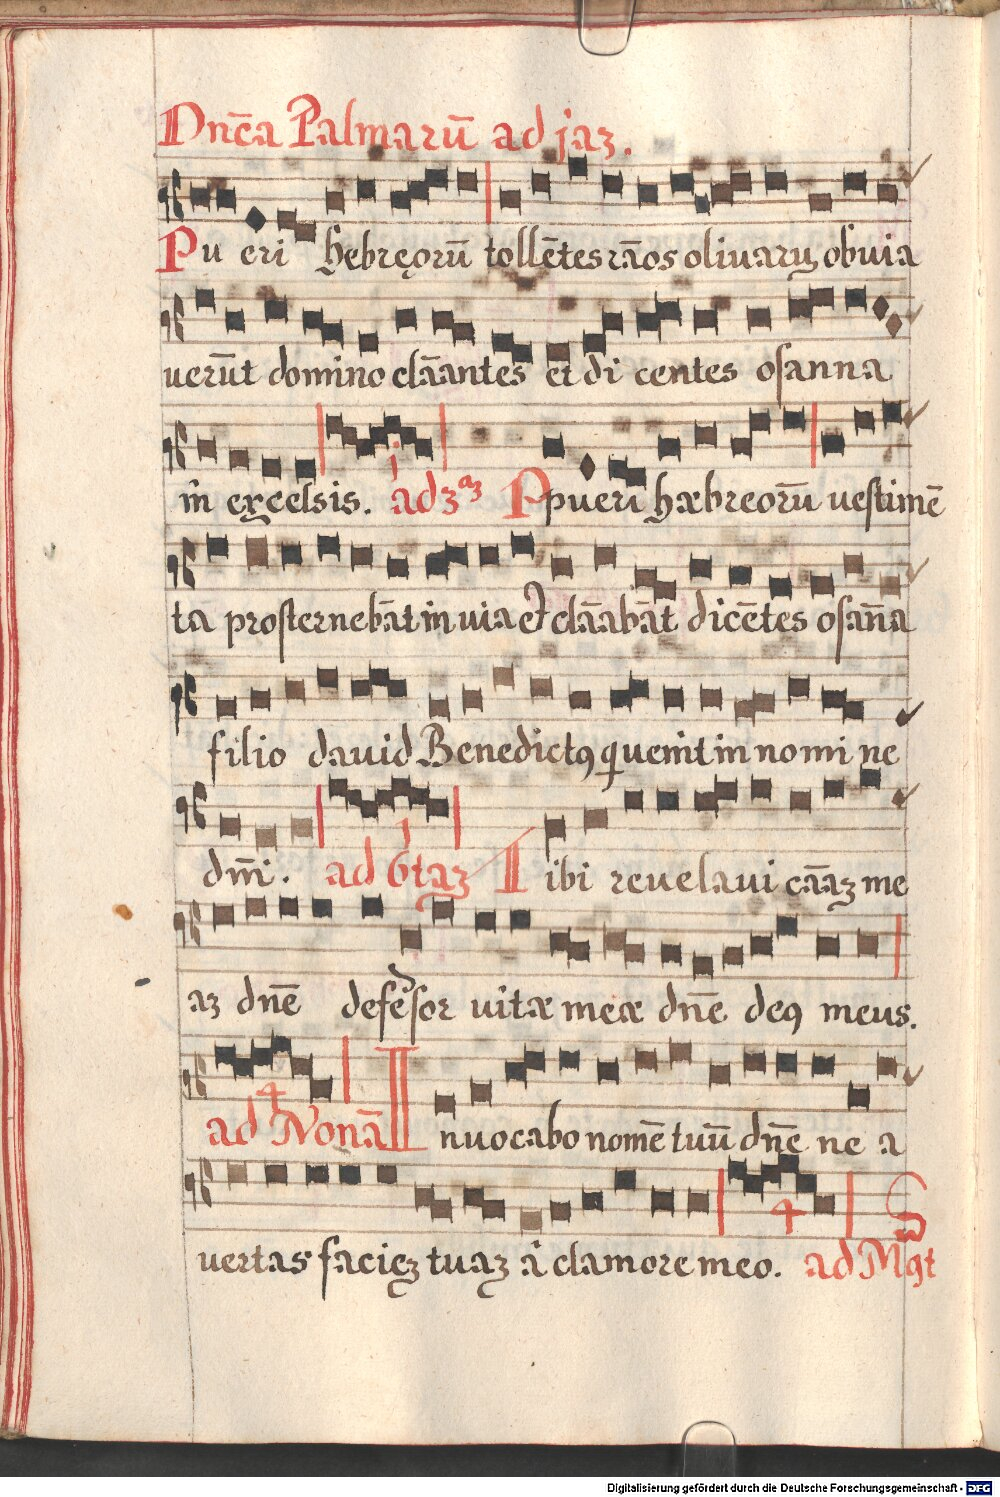 Dnĉa Palmarū ad jaʒ.
Pu eri hebręorū tollētes rāos oliuarų obuia
uerūt domino clāantes et di centes osanna
in excelsis. adʒaʒ Ppueri hæbreorū uestimē
ta prosternebāt in uia et clāabāt dicētes osāna
filio dauid Benedictꝰ qui uenit in no mi ne
dm̄i. ad 6taʒ Tibi reuelaui cāaʒ me
aʒ dn̄e defēsor uitæ meæ dn̄e deꝰ meus.
4
ad Nonā Inuocabo nomē tuū dn̄e ne a
uertas facieʒ tuaʒ â clamore meo. 4 ad Mgt
Digitalisierung gefördert durch die Deutsche Forschungsgemeinschaft - DFG